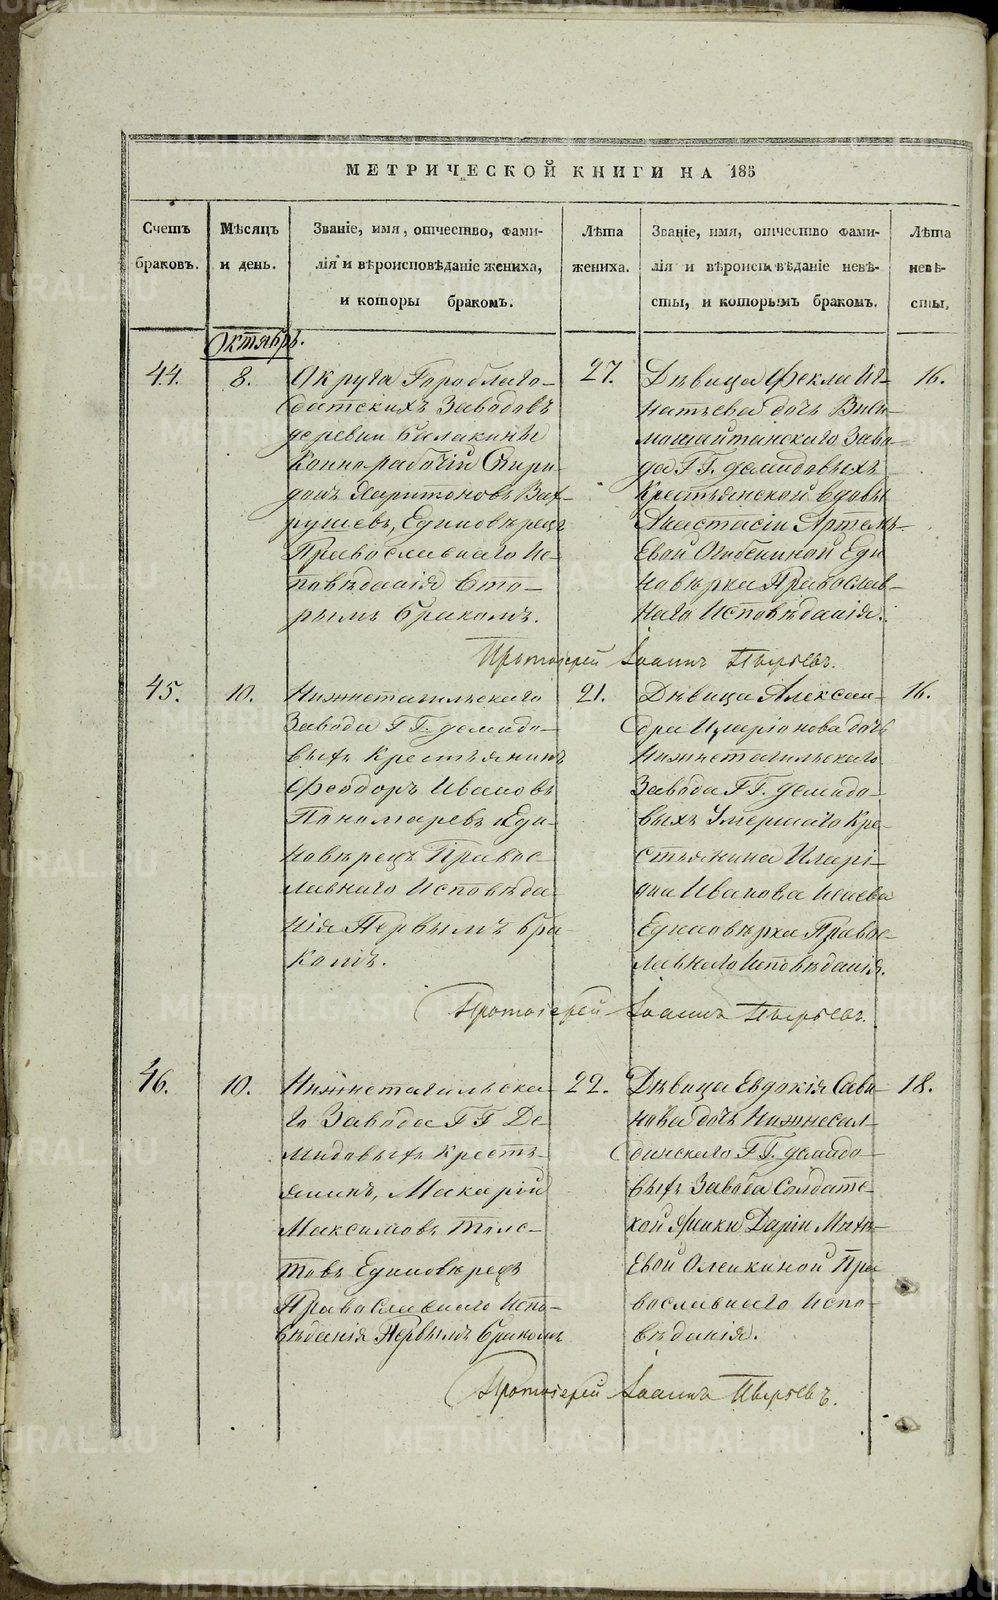 МЕТРИЧЕСКОЙ КНИГИ НА 185
Счетъ браковъ.
Мѣсяцъ и день.
Званіе, имя, отчество, фами-
лія и вѣроисповѣданіе жениха,
и которы бракомъ.
Лѣта жениха.
Званіе, имя, отчество фами-
лія и вѣроисповѣданіе невѣ-
сты, и которымъ бракомъ.
Лѣта невѣ-
сты.
Октябрь.
44.
8.
Округа Гороблаго-
датскихъ Заводовъ
деревни Балакиной
Коннорабочій Спири-
донъ Харитоновъ Вах-
рушевъ, Единовѣрецъ
Православнаго Ис-
повѣданія Вто-
рымъ бракомъ.
27.
Дѣвица Фекла Иг-
натьева дочь Виси-
мошайтанскаго Заво-
да Г.Г. Демидовыхъ
Крестьянской вдовы
Анастасіи Артемь-
евой Огибениной Еди
новѣрка Православ-
наго Исповѣданія.
16.
Протоіерей Іоаннъ Пырьевъ.
45.
10.
Нижнетагильскаго
Завода Г.Г. Демидо-
выхъ Крестьянинъ
Феодоръ Ивановъ
Пономаревъ Еди-
новѣрецъ Правос-
лавнаго Исповѣда-
нія Первымъ бра-
комъ.
21.
Дѣвица Алексан-
дра Иларіонова дочь
Нижнетагильскаго
Завода Г.Г. Демидо-
выхъ Умершаго Кре-
стьянина Иларі-
она Иванова Исаева
Единовѣрка Правос-
лавнаго Исповѣданія.
16.
Протоіерей Іоаннъ Пырьевъ.
46.
10.
Нижнетагильска-
го Завода Г Г Де
мидовыхъ Кресть-
янинъ, Макарій
Максимовъ Толс-
товъ Единовѣрецъ
Православнаго Испо-
вѣданія Первымъ бракомъ
22.
Дѣвица Евдокія Сави-
нова дочь Нижнесал-
динскаго Г.Г. Демидо-
выхъ Завода Солдатс-
кой Жинки Даріи Матѳ-
евой Олейкиной Пра
вославнаго Испо-
вѣданія.
18.
Протоіерей Іоаннъ Пырьевъ.
METRIKI.GASO-URAL.RU